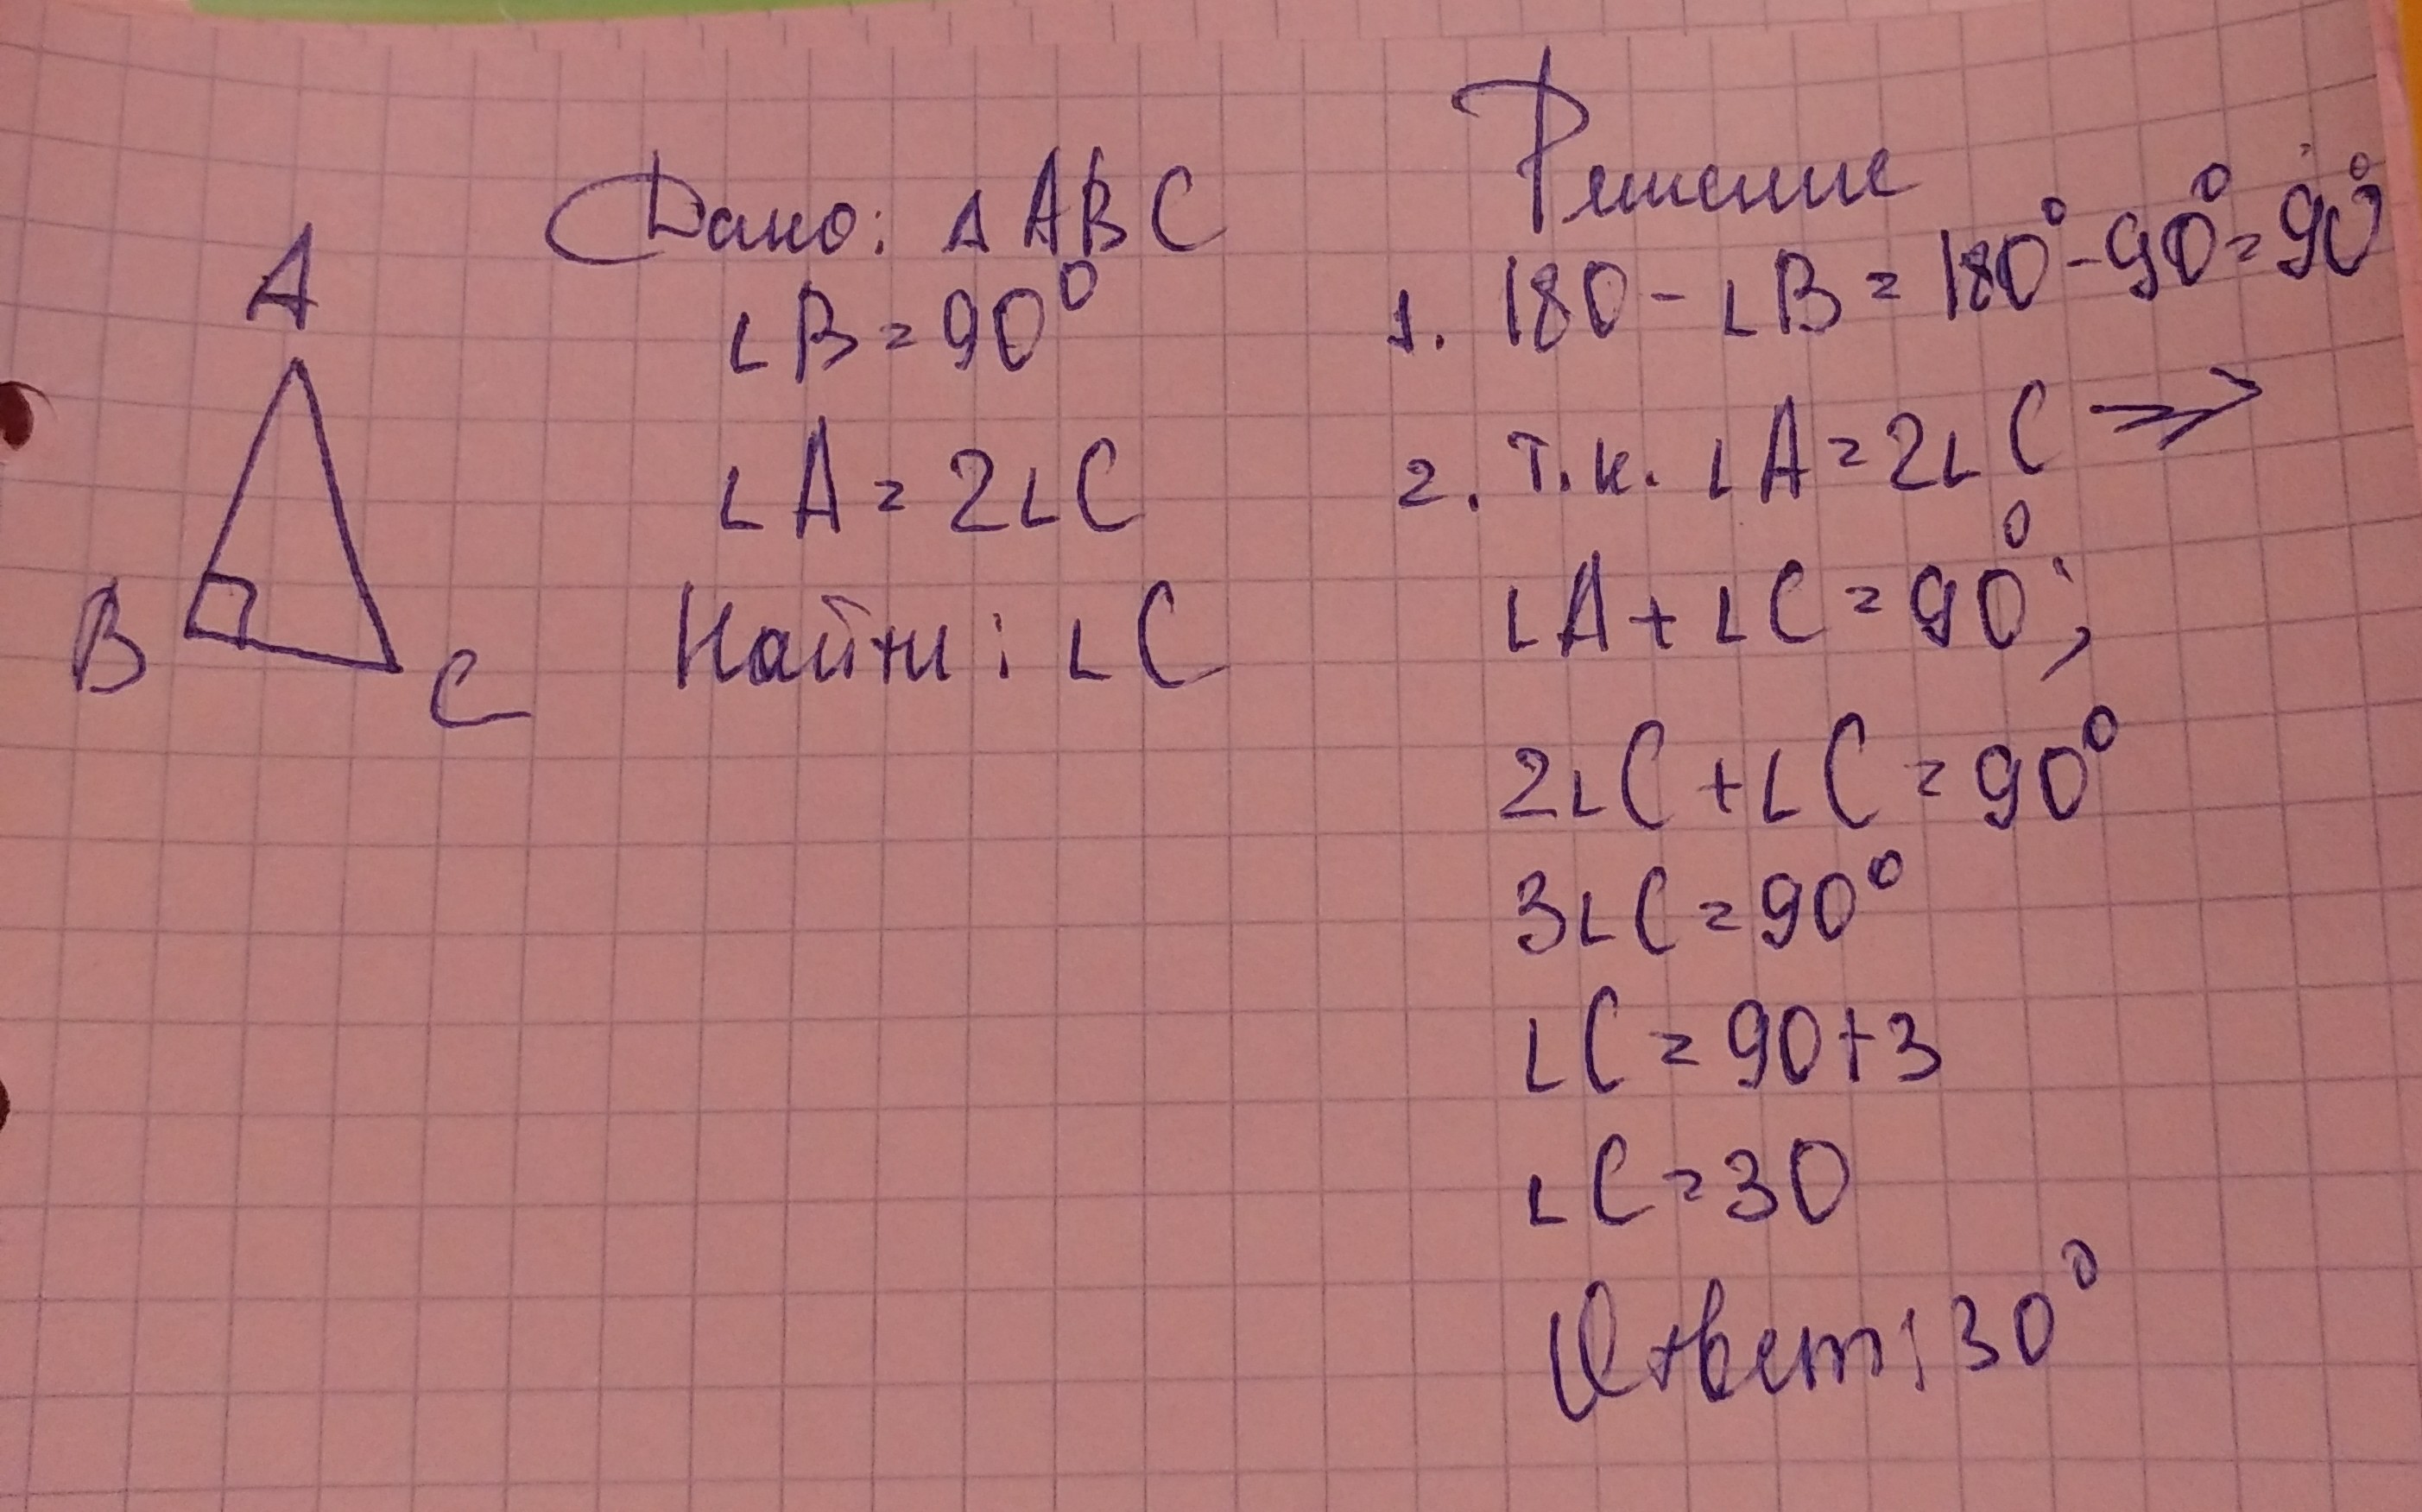 A
B
C
Дано: Δ ABC
∠B = 90°
∠A = 2∠C
Найти: ∠C
Решение
1. 180 - ∠B = 180° - 90° = 90°
2. т.к. ∠A = 2∠C ⇒
∠A + ∠C = 90°;
2∠C + ∠C = 90°
3∠C = 90°
∠C = 90+3
∠C = 30
Ответ: 30°